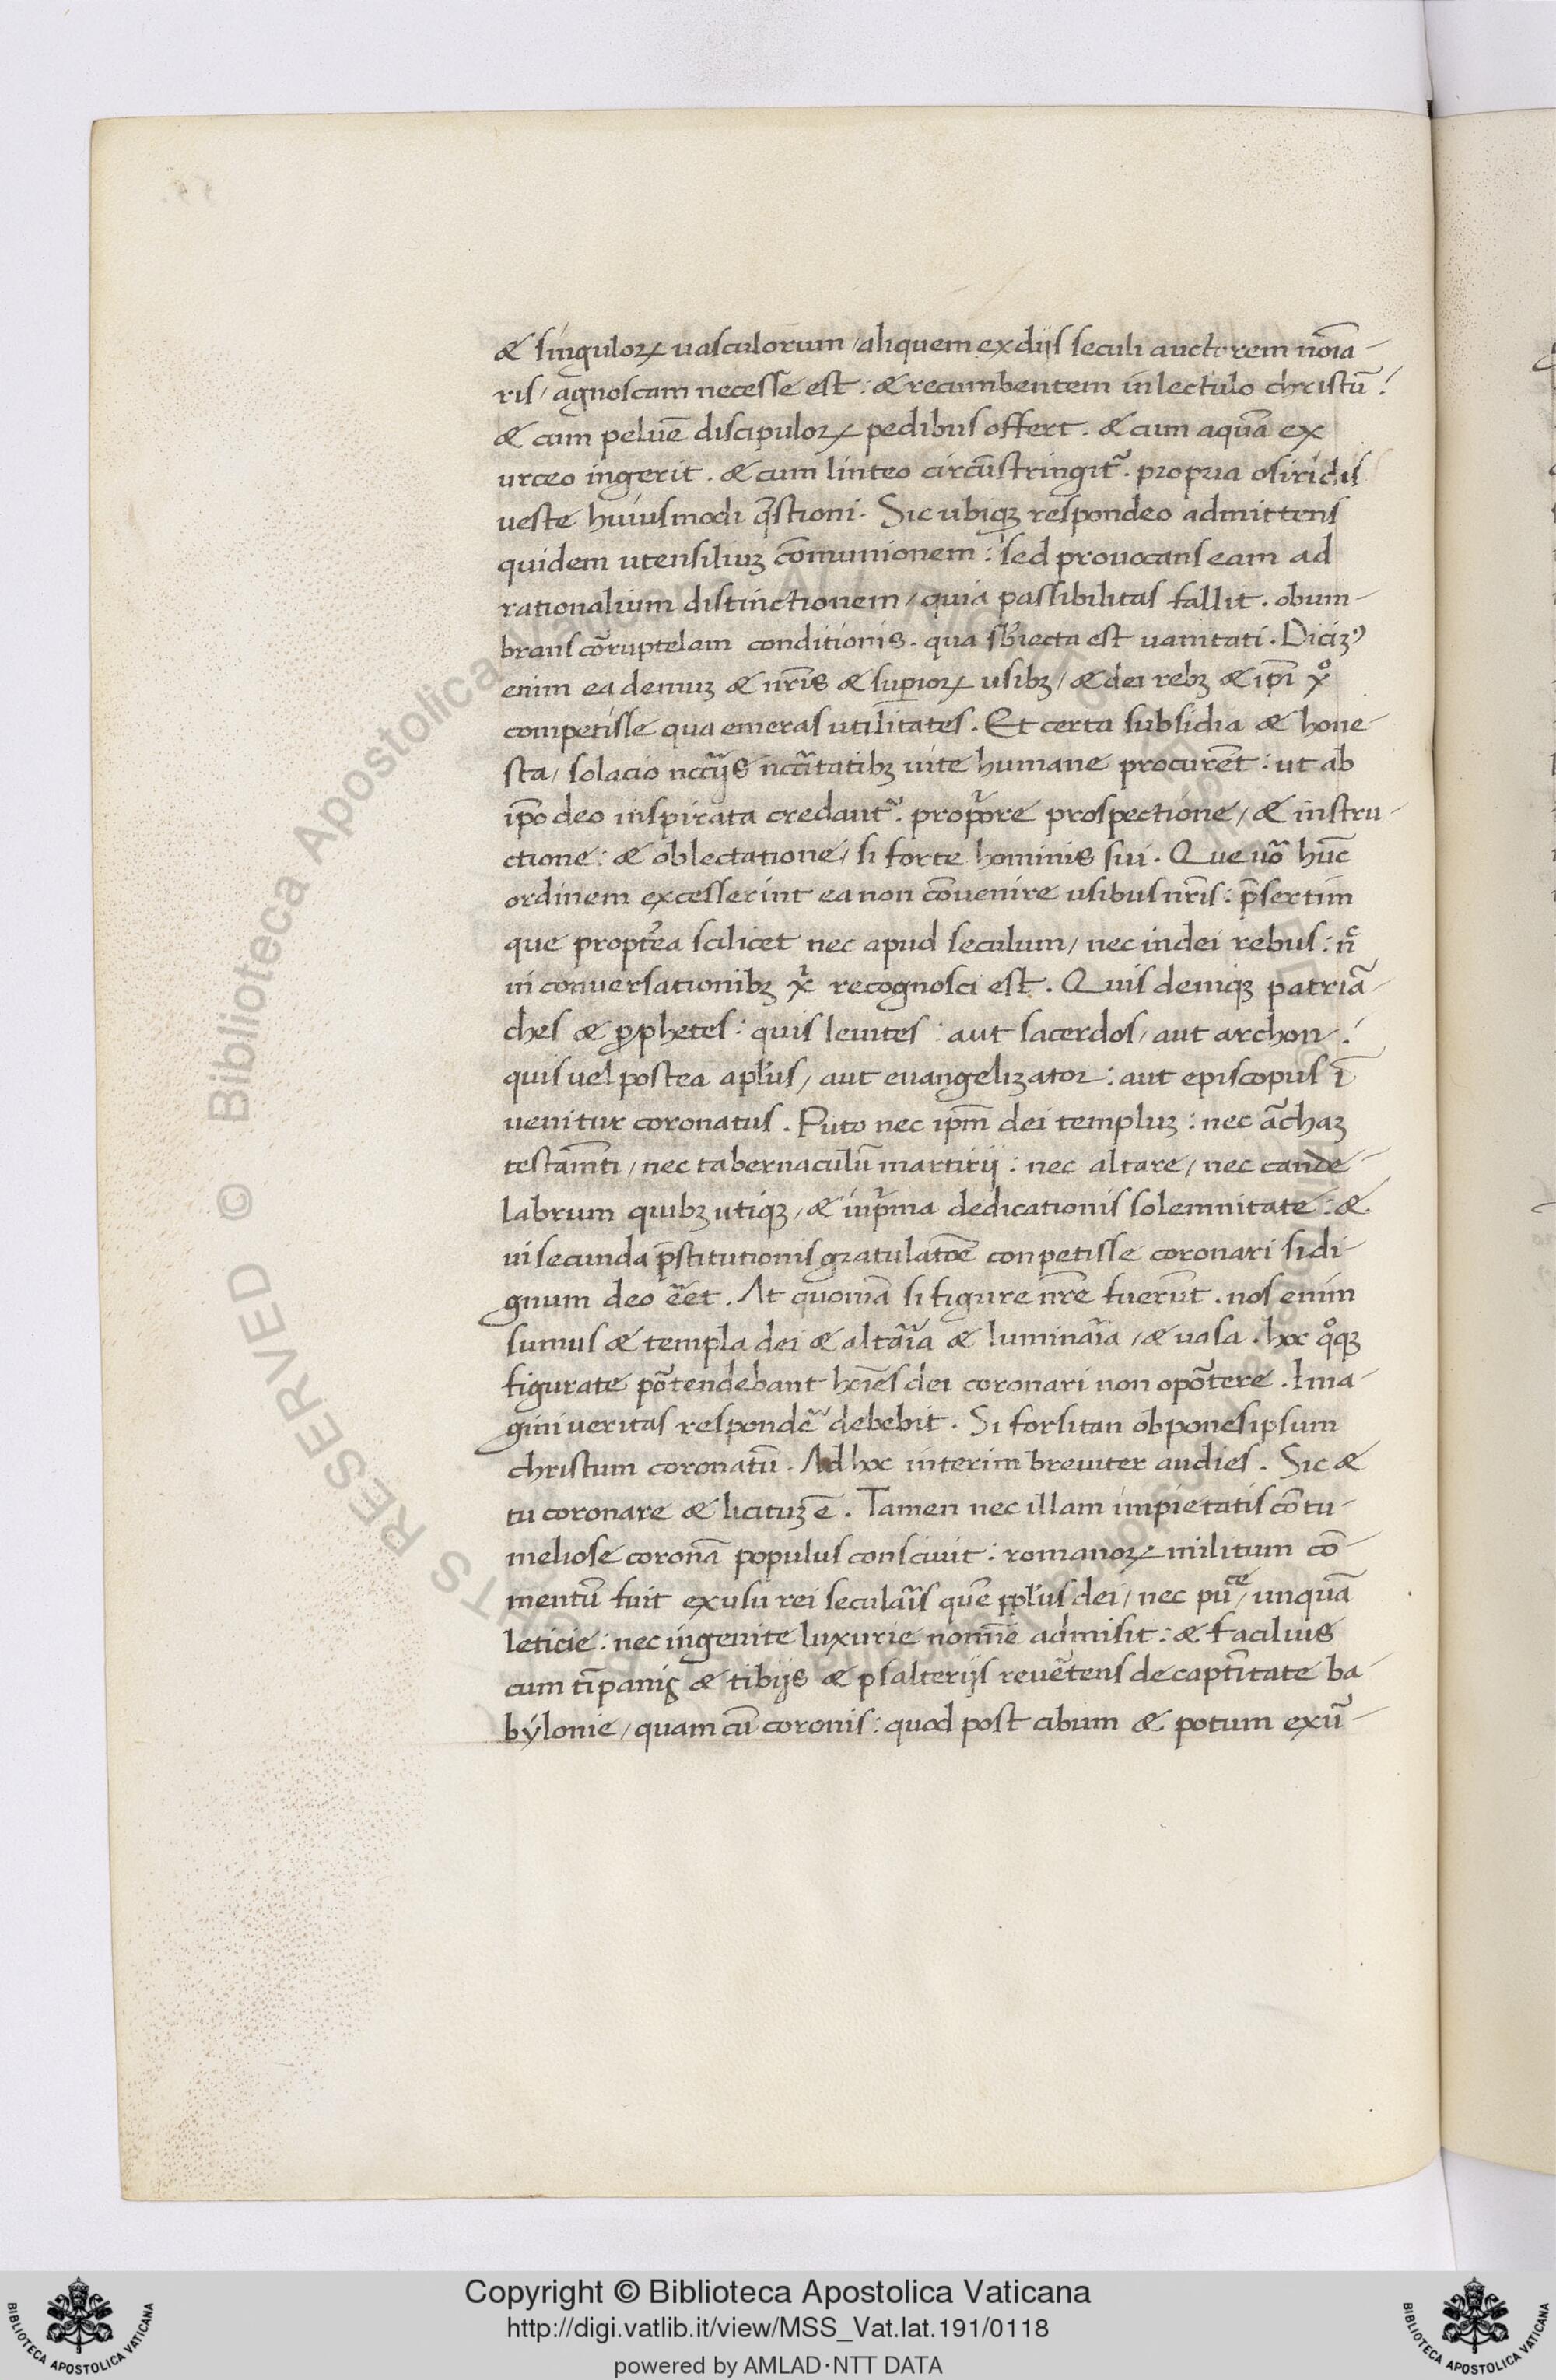 & singuloꝝ uasculorum / aliquem ex dijs seculi auctorem noīa-
ris / agnoscam necesse est : & recumbentem in lectulo christū :
& cum peluē discipuloꝝ pedibus offert . & cum aquā ex
urceo ingerit . & cum linteo circūstringit᷑ . propria osiridis
ueste huiusmodi q̄stioni . Sic ubiqꝫ respondeo admittens
quidem utensiliuꝫ cōmunionem : sed prouocans eam ad
rationalium distinctionem / quia passibilitas fallit . obum-
brans corruptelam conditionis . qua sb̄iecta est uanitati . Diciꝫꝰ
enim ea demuꝫ & nr̄is & superioꝝ usibꝫ / & dei rebꝫ & ip̄i xͦ
competisse qua emeras utilitates . Et certa subsidia & hone-
sta / solacio nccījs nccītatibꝫ uite humane procurēt : ut ab
ip̄o deo inspirata credant᷑ . propōre prospectione / & instru-
ctione : & oblectatione / si forte hominis sui . Que uo᷑ hūc
ordinem excesserint ea non cōuenire usibus nr̄is : p̄sertim
que propt᷑ea scilicet nec apud seculum / nec in dei rebus : nͨ
in conuersationibꝫ xⁱ recognosci est . Quis deniqꝫ patria᷑-
ches & ꝓphetes : quis leuites : aut sacerdos / aut archon :
quis uel postea aplu̾s / aut euangelizator : aut episcopus ī
uenitur coronatus . Puto nec ip̄m dei templuꝫ : nec a᷑chaꝫ
testām̄ti / nec tabernaculū martirij : nec altare / nec cande-
labrum quibꝫ utiqꝫ / & in pⁱma dedicationis solemnitate : &
ui secunda p̄stitutionis gratulatōe conpetisse coronari si di-
gnum deo e᷑et . At quoniā si figure nr̄e fuerūt . nos enim
sumus & templa dei & alta᷑ia & lumina᷑ia / & uasa . hoc qͦqꝫ
figurate po᷑tendebant hoīes dei coronari non opo᷑tere . Ima-
gini ueritas respondē᷑ debebit . Si forsitan obpones ipsum
christum coronatū . Ad hoc interim breuiter audies . Sic &
tu coronare & licituꝫ ē . Tamen nec illam impietatis cōtu-
meliose coronā populus consciuit : romanoꝝ militum cō-
mentū fuit ex usu rei secula᷑is quē pplu̾s dei / nec pūce / unquā
leticie : nec ingenite luxurie nomīe admisit : & facilius
cum tīpanis & tibijs & psalterijs reue᷑tens de captiⁱtate ba-
bylonie / quam cū coronis : quod post cibum & potum exu᷑-
Copyright © Biblioteca Apostolica Vaticana
http://digi.vatlib.it/view/MSS_Vat.lat.191/0118
powered by AMLAD·NTT DATA